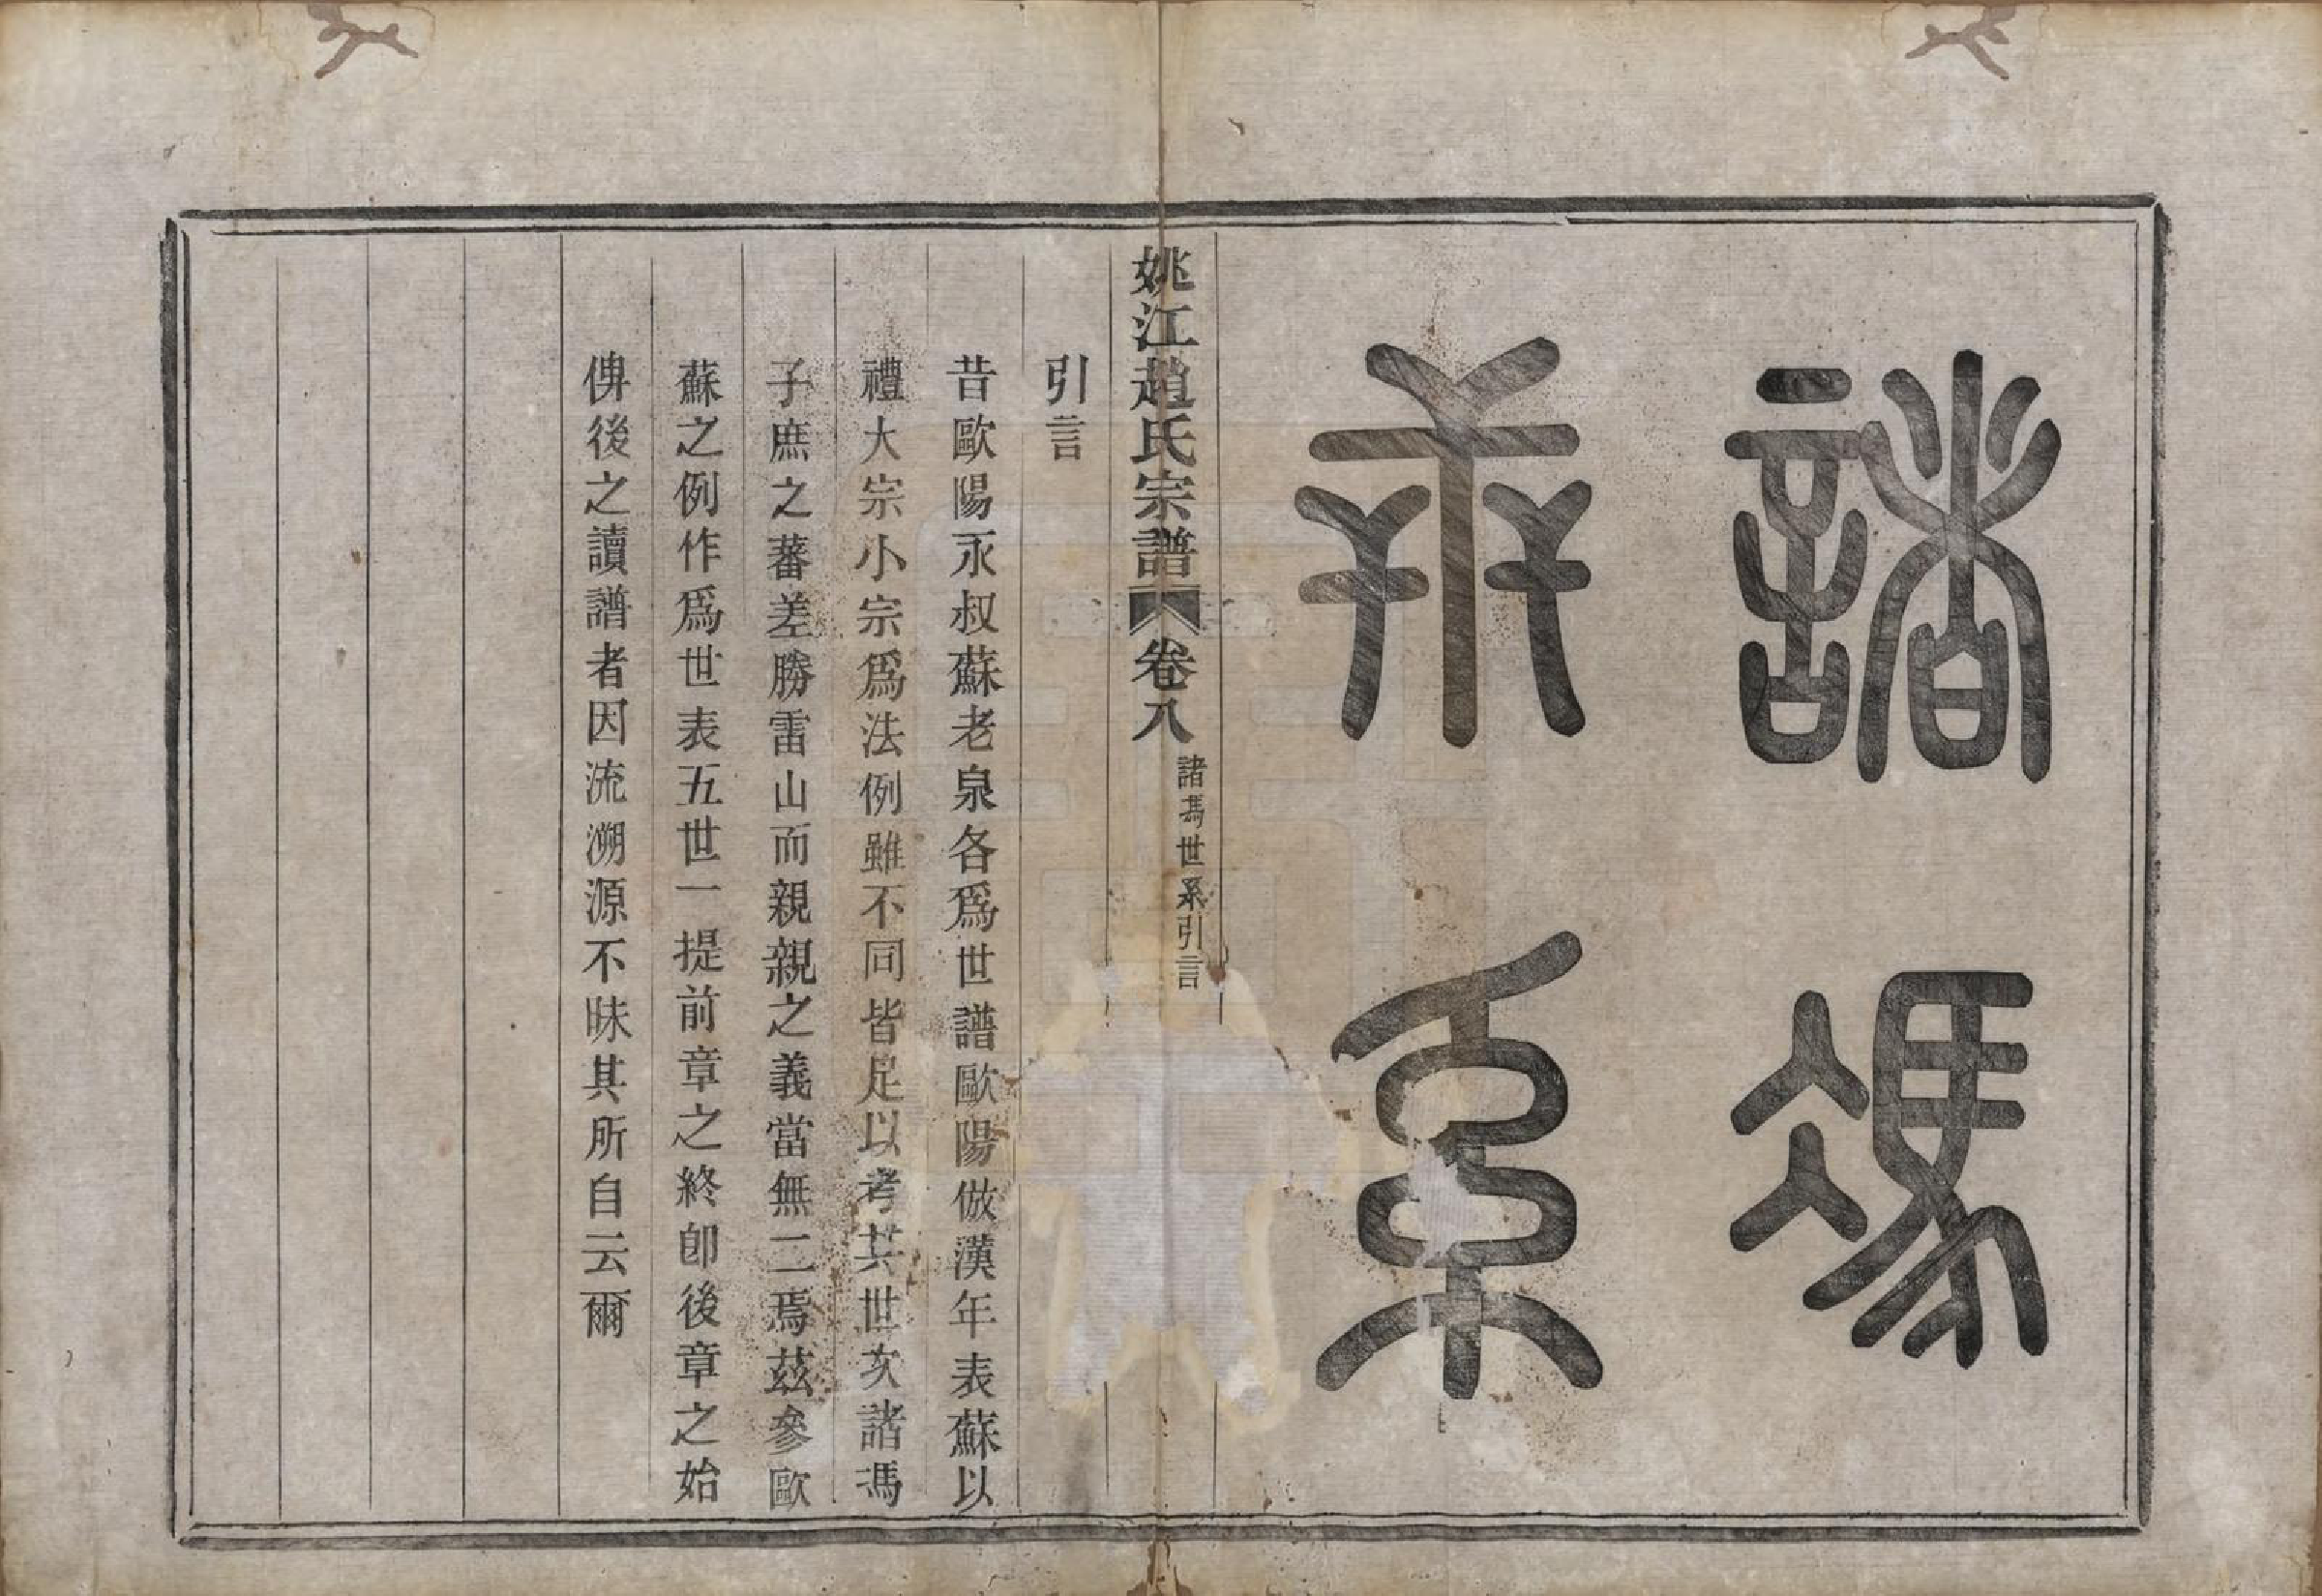 諸馮
世系
姚江趙氏宗譜 卷八 諸馮世系引言
引言
昔歐陽永叔蘇老泉各爲世譜歐陽倣漢年表蘇以
禮大宗小宗爲法例雖不同皆足以考其世次諸馮
子庶之蕃差勝雷山而親親之義當無二焉茲參歐
蘇之例作爲世表五世一提前章之終卽後章之始
俾後之讀譜者因流溯源不昧其所自云爾